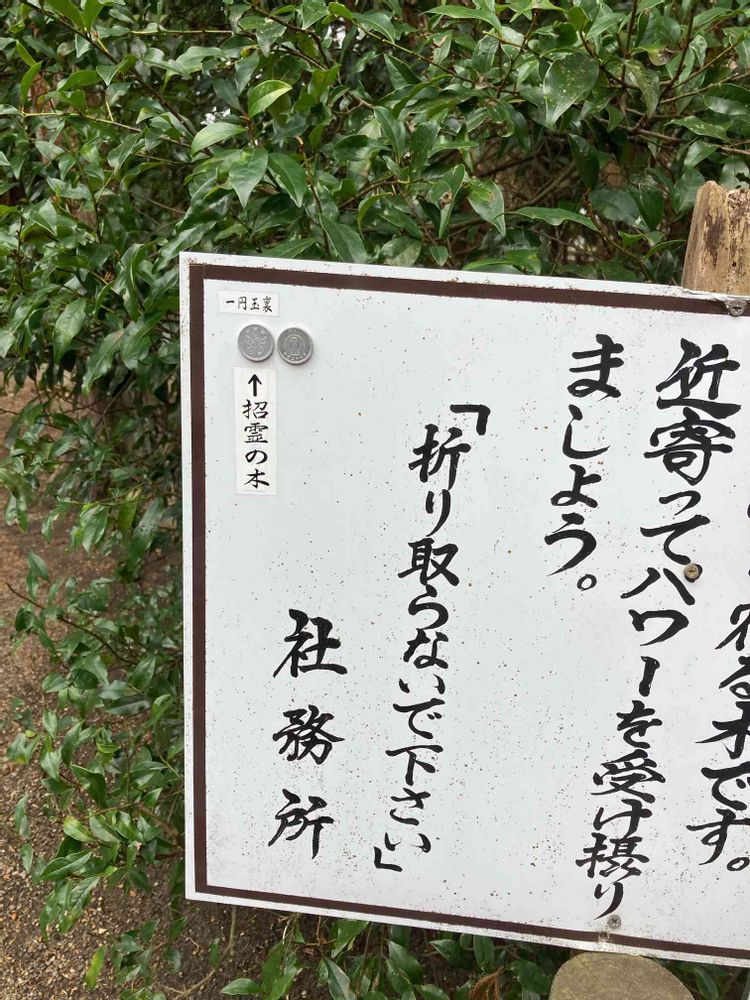 宿る木です。
近寄ってパワーを受け摂り
ましょう。
「折り取らないで下さい」
社務所
一円玉裏
↑招霊の木